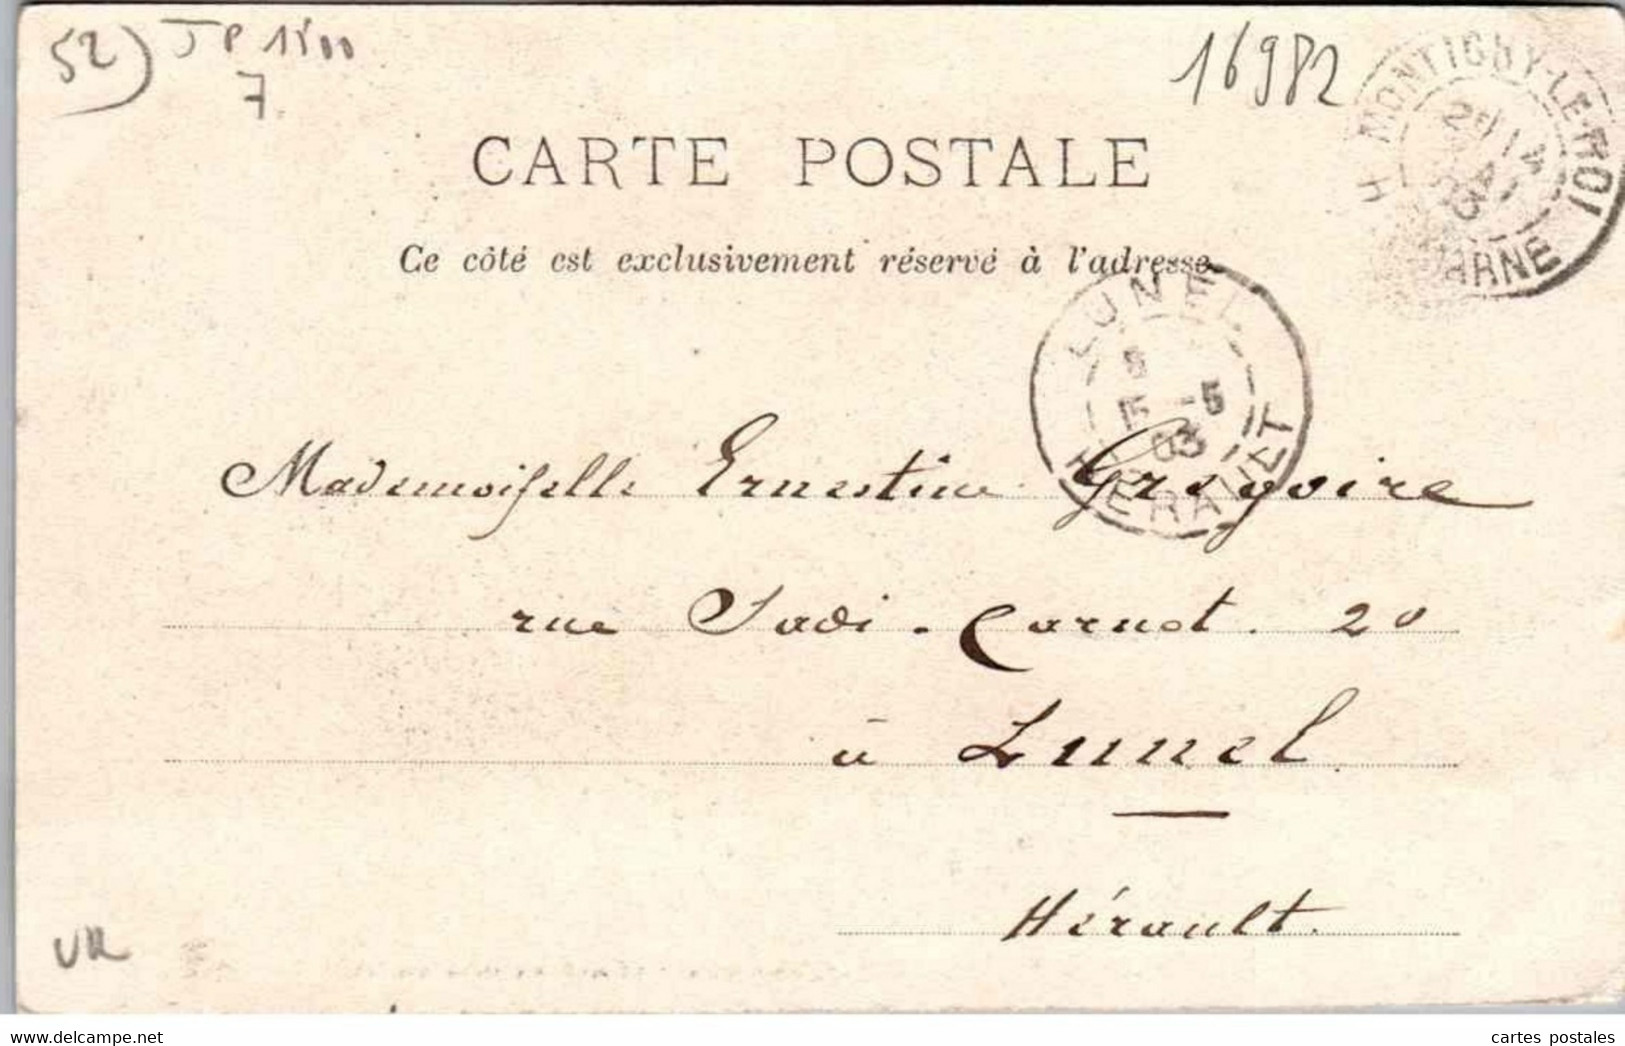 52) JP 1500
7
16982
MONTIGNY-LE-ROI
H MARNE
CARTE POSTALE
Ce côté est exclusivement réservé à l'adresse
LUNEL
15 -5
03
HERAULT
Mademoiselle Ernestine Gregoire
rue Sadi-Carnot. 20
à Lunel
Hérault.
VR
www.delcampe.net
cartes postales